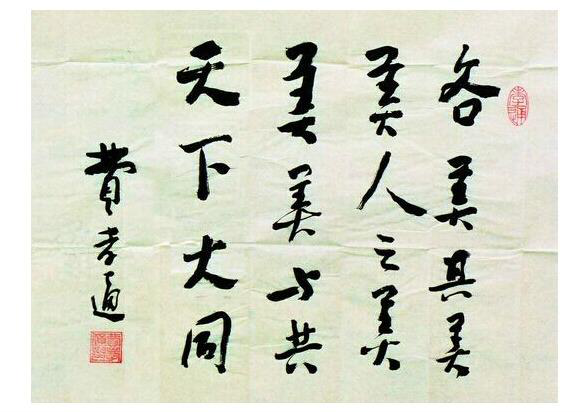 各美其美
美人之美
美美与共
天下大同
费孝通